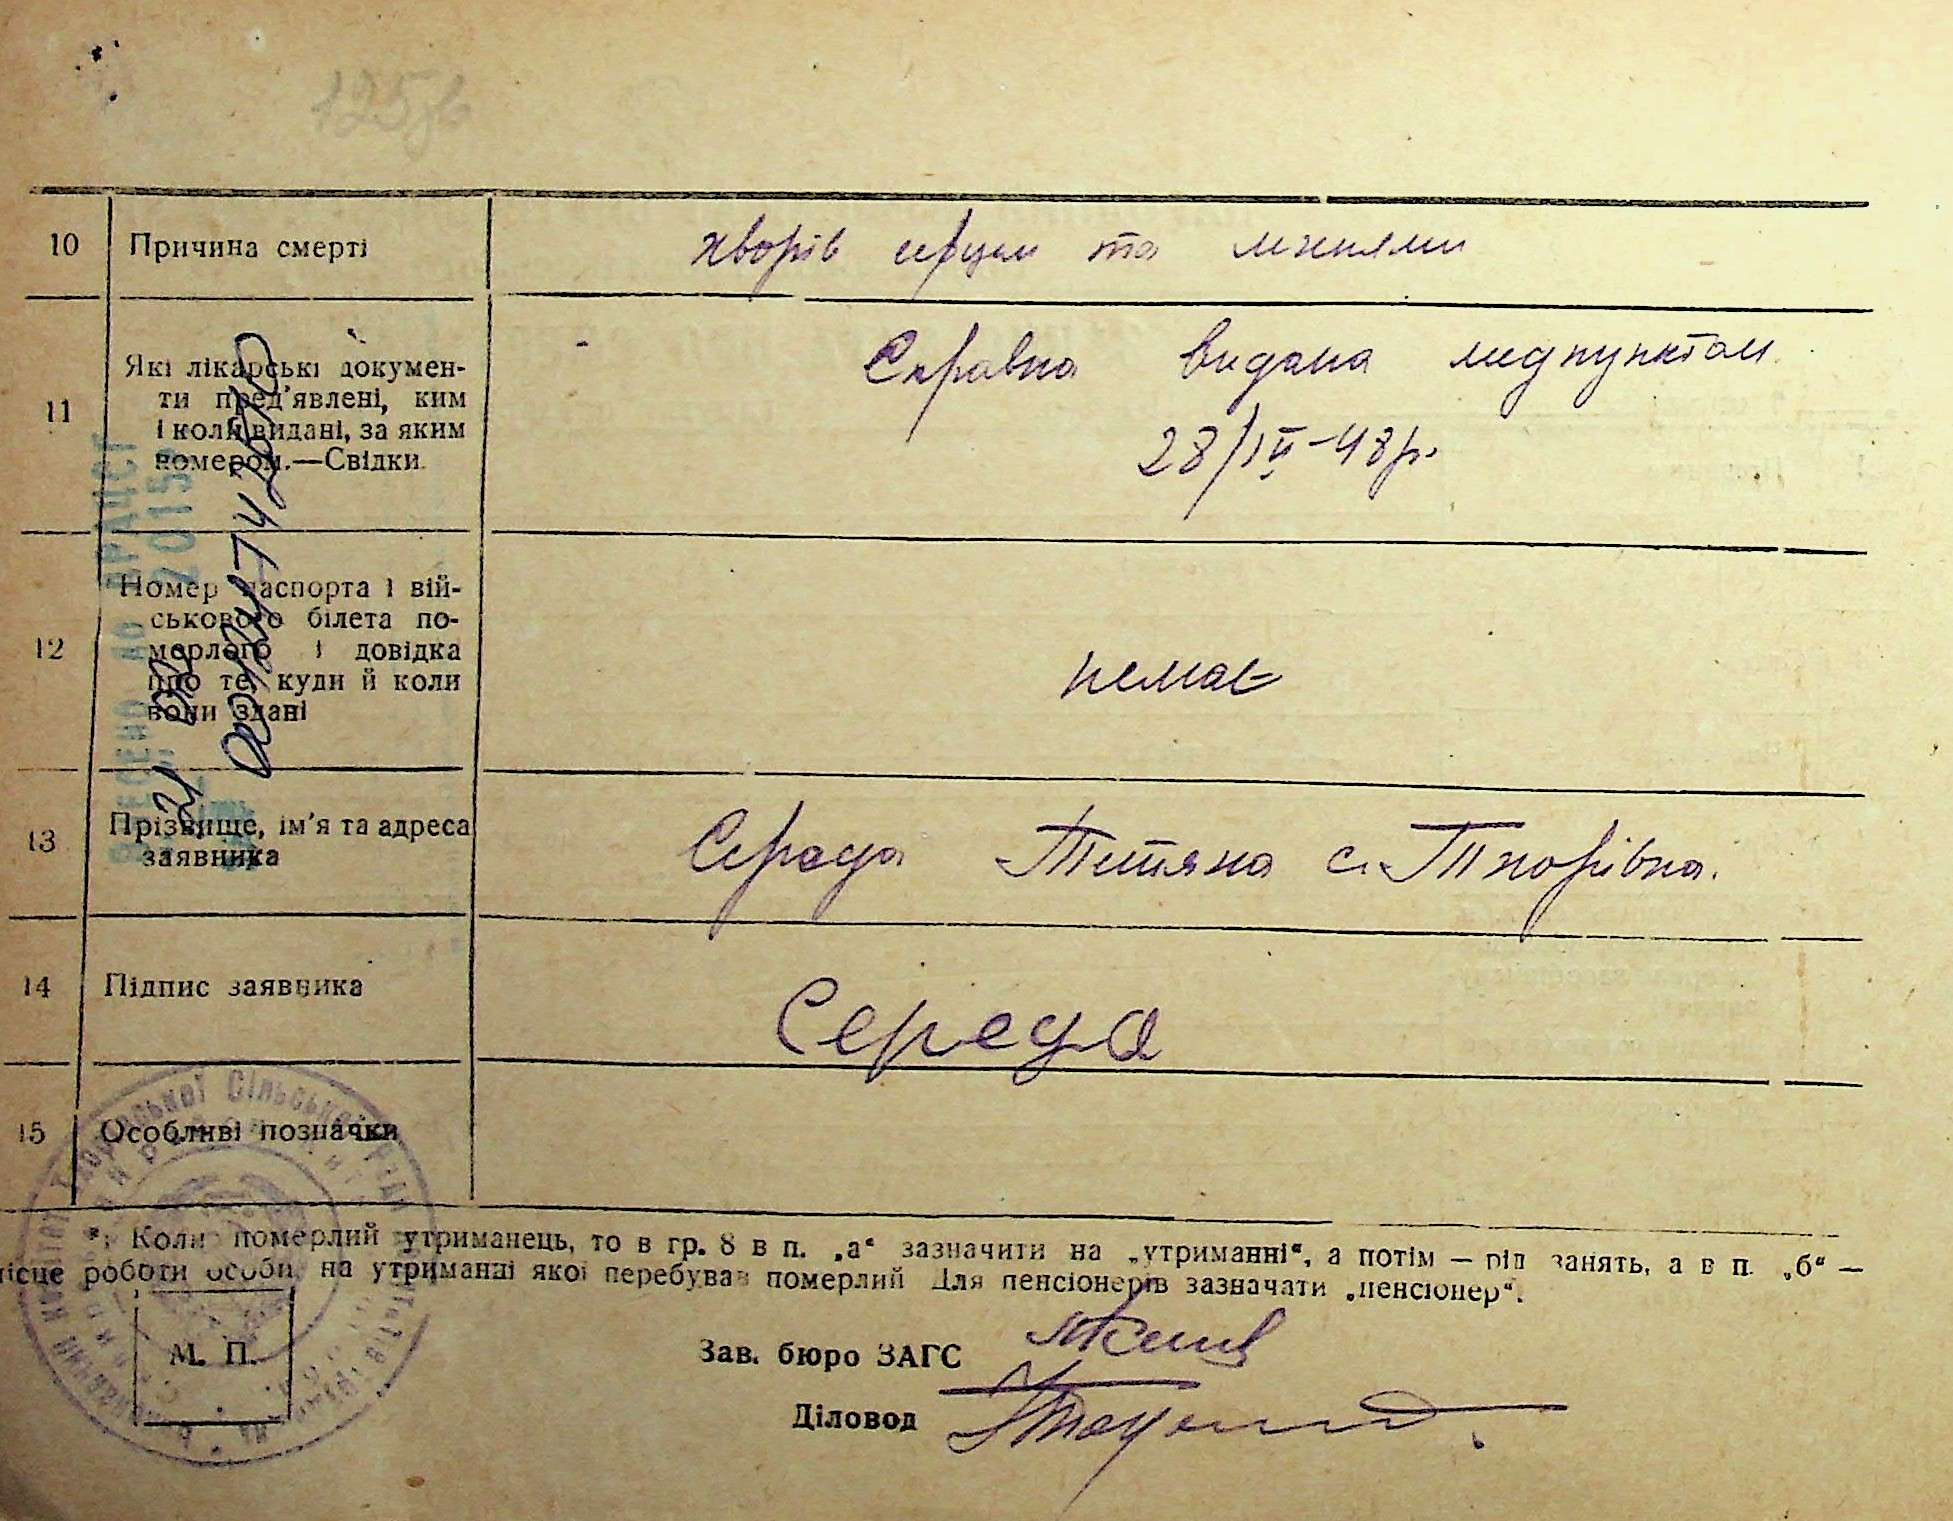 125зв
10 Причина смерті хворів серцем та легенями
11 Які лікарські докумен-
ти пред'явлені, ким
і коли видані, за яким
номером.—Свідки.
Справка видана медпунктом
28/IV-48р.
12 Номер паспорта і вій-
ськового білета по-
мерлого і довідка
про те, куди й коли
вони здані
немає
13 Прізвище, ім'я та адреса
заявника
Середа Тетяна с. Тхорівка.
14 Підпис заявника Середа
15 Особливі позначки
*) Коли померлий утриманець, то в гр. 8 в п. „а“ зазначити на „утриманні“, а потім — рід занять, а в п. „б“ —
місце роботи особи, на утриманні якої перебував померлий Для пенсіонерів зазначати „пенсіонер“.
М. П.
Зав. бюро ЗАГС
Діловод
ВНЕСЕНО ДО ДРАЦСГ
2015